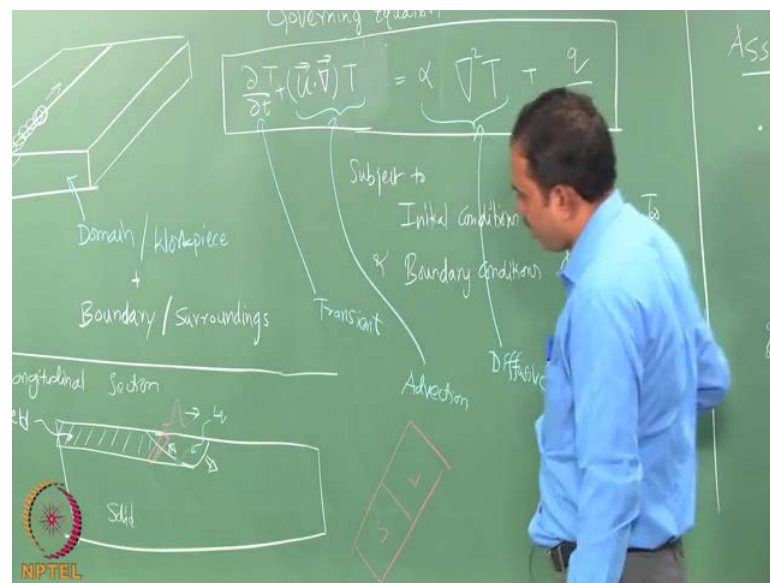 Governing Equation
∂T/∂t + (u⃗·∇⃗)T = α ∇²T + q
Subject to
Initial Conditions
& Boundary Conditions
Domain / Workpiece
+
Boundary / Surroundings
Transient
Advection
Diffusive
Longitudinal Section
Solid
L
S
L
Ass
To
NPTEL